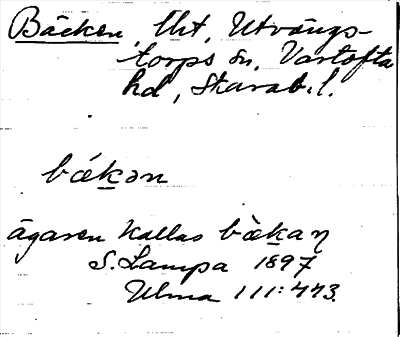 Bäcken, lht, Utvängs-
torps sn, Vartofta
hd, Skarab. l.
bǽkən
ägaren kallas bæ̀kaɳ
S. Lampa 1897
Ulma 111:443.